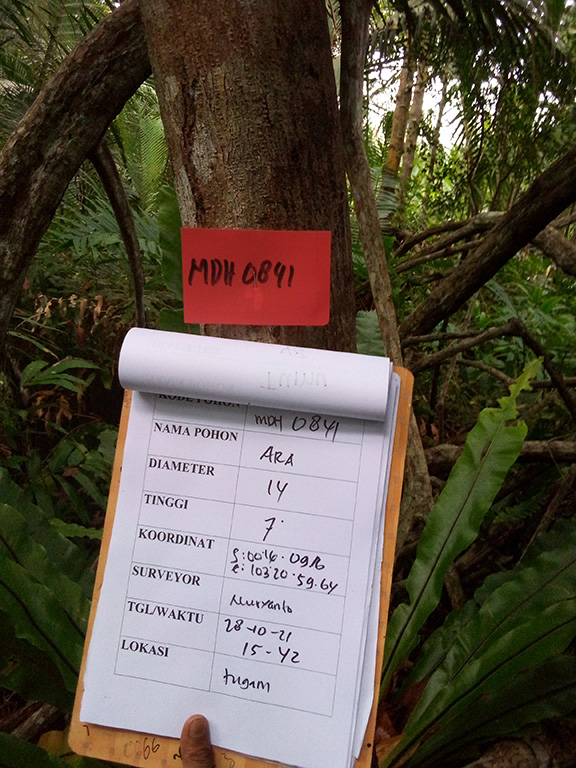 MDH 0841
KODE POHON MDH 0841
NAMA POHON ARA
DIAMETER 14
TINGGI 7
KOORDINAT S:0016.09.16
E:10320.59.64
SURVEYOR Nuryanto
TGL/WAKTU 28-10-21
15-42
LOKASI tugam